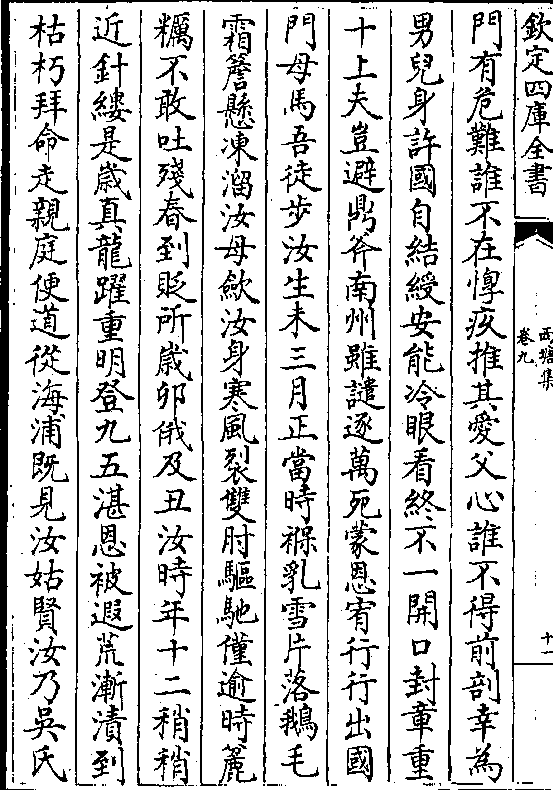 欽定四庫全書
卷九
十一
門有危難誰不在惸疚推其愛父心誰不得前剖幸為
男兒身許國自結綬安能冷眼看終不一開口封章重
十上夫豈避鼎斧南州雖譴逐萬死蒙恩宥行行出國
門母馬吾徒步汝生未三月正當時褓乳雪片落鵝毛
霜簷懸凍溜汝母歛汝身寒風裂雙肘驅馳僅逾時麄
糲不敢吐殘春到貶所歲卯俄及丑汝時年十二稍稍
近針縷是歲真龍躍重明登九五湛恩被遐荒漸漬到
枯朽拜命走親庭便道從海浦既見汝姑賢汝乃吳氏